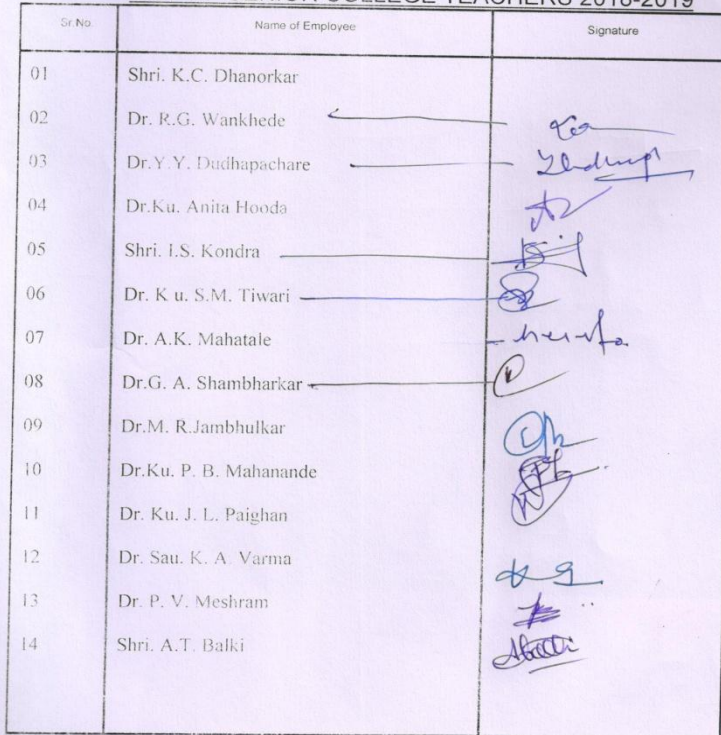 COLLEGE TEACHERS 2018-2019
Sr.No. Name of Employee Signature
01 Shri. K.C. Dhanorkar
02 Dr. R.G. Wankhede
03 Dr.Y.Y. Dudhapachare
04 Dr.Ku. Anita Hooda
05 Shri. I.S. Kondra
06 Dr. K u. S.M. Tiwari
07 Dr. A.K. Mahatale
08 Dr.G. A. Shambharkar
09 Dr.M. R.Jambhulkar
10 Dr.Ku. P. B. Mahanande
11 Dr. Ku. J. L. Paighan
12 Dr. Sau. K. A. Varma
13 Dr. P. V. Meshram
14 Shri. A.T. Balki